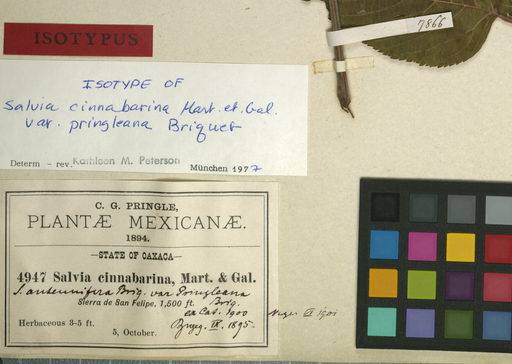 7866
ISOTYPUS
ISOTYPE OF
Salvia cinnabarina Mart. et. Gal.
var. pringleana Briquet
Determ – rev. Kathleen M. Peterson München 1977
C. G. PRINGLE,
PLANTÆ MEXICANÆ.
1894.
—STATE OF OAXACA—
4947 Salvia cinnabarina, Mart. & Gal.
S. antennifera Briq. var Pringleana
Sierra de San Felipe, 7,500 ft. Briq.
ex Cat. 1900
Herbaceous 3-5 ft.
IX. 1895.
5, October.